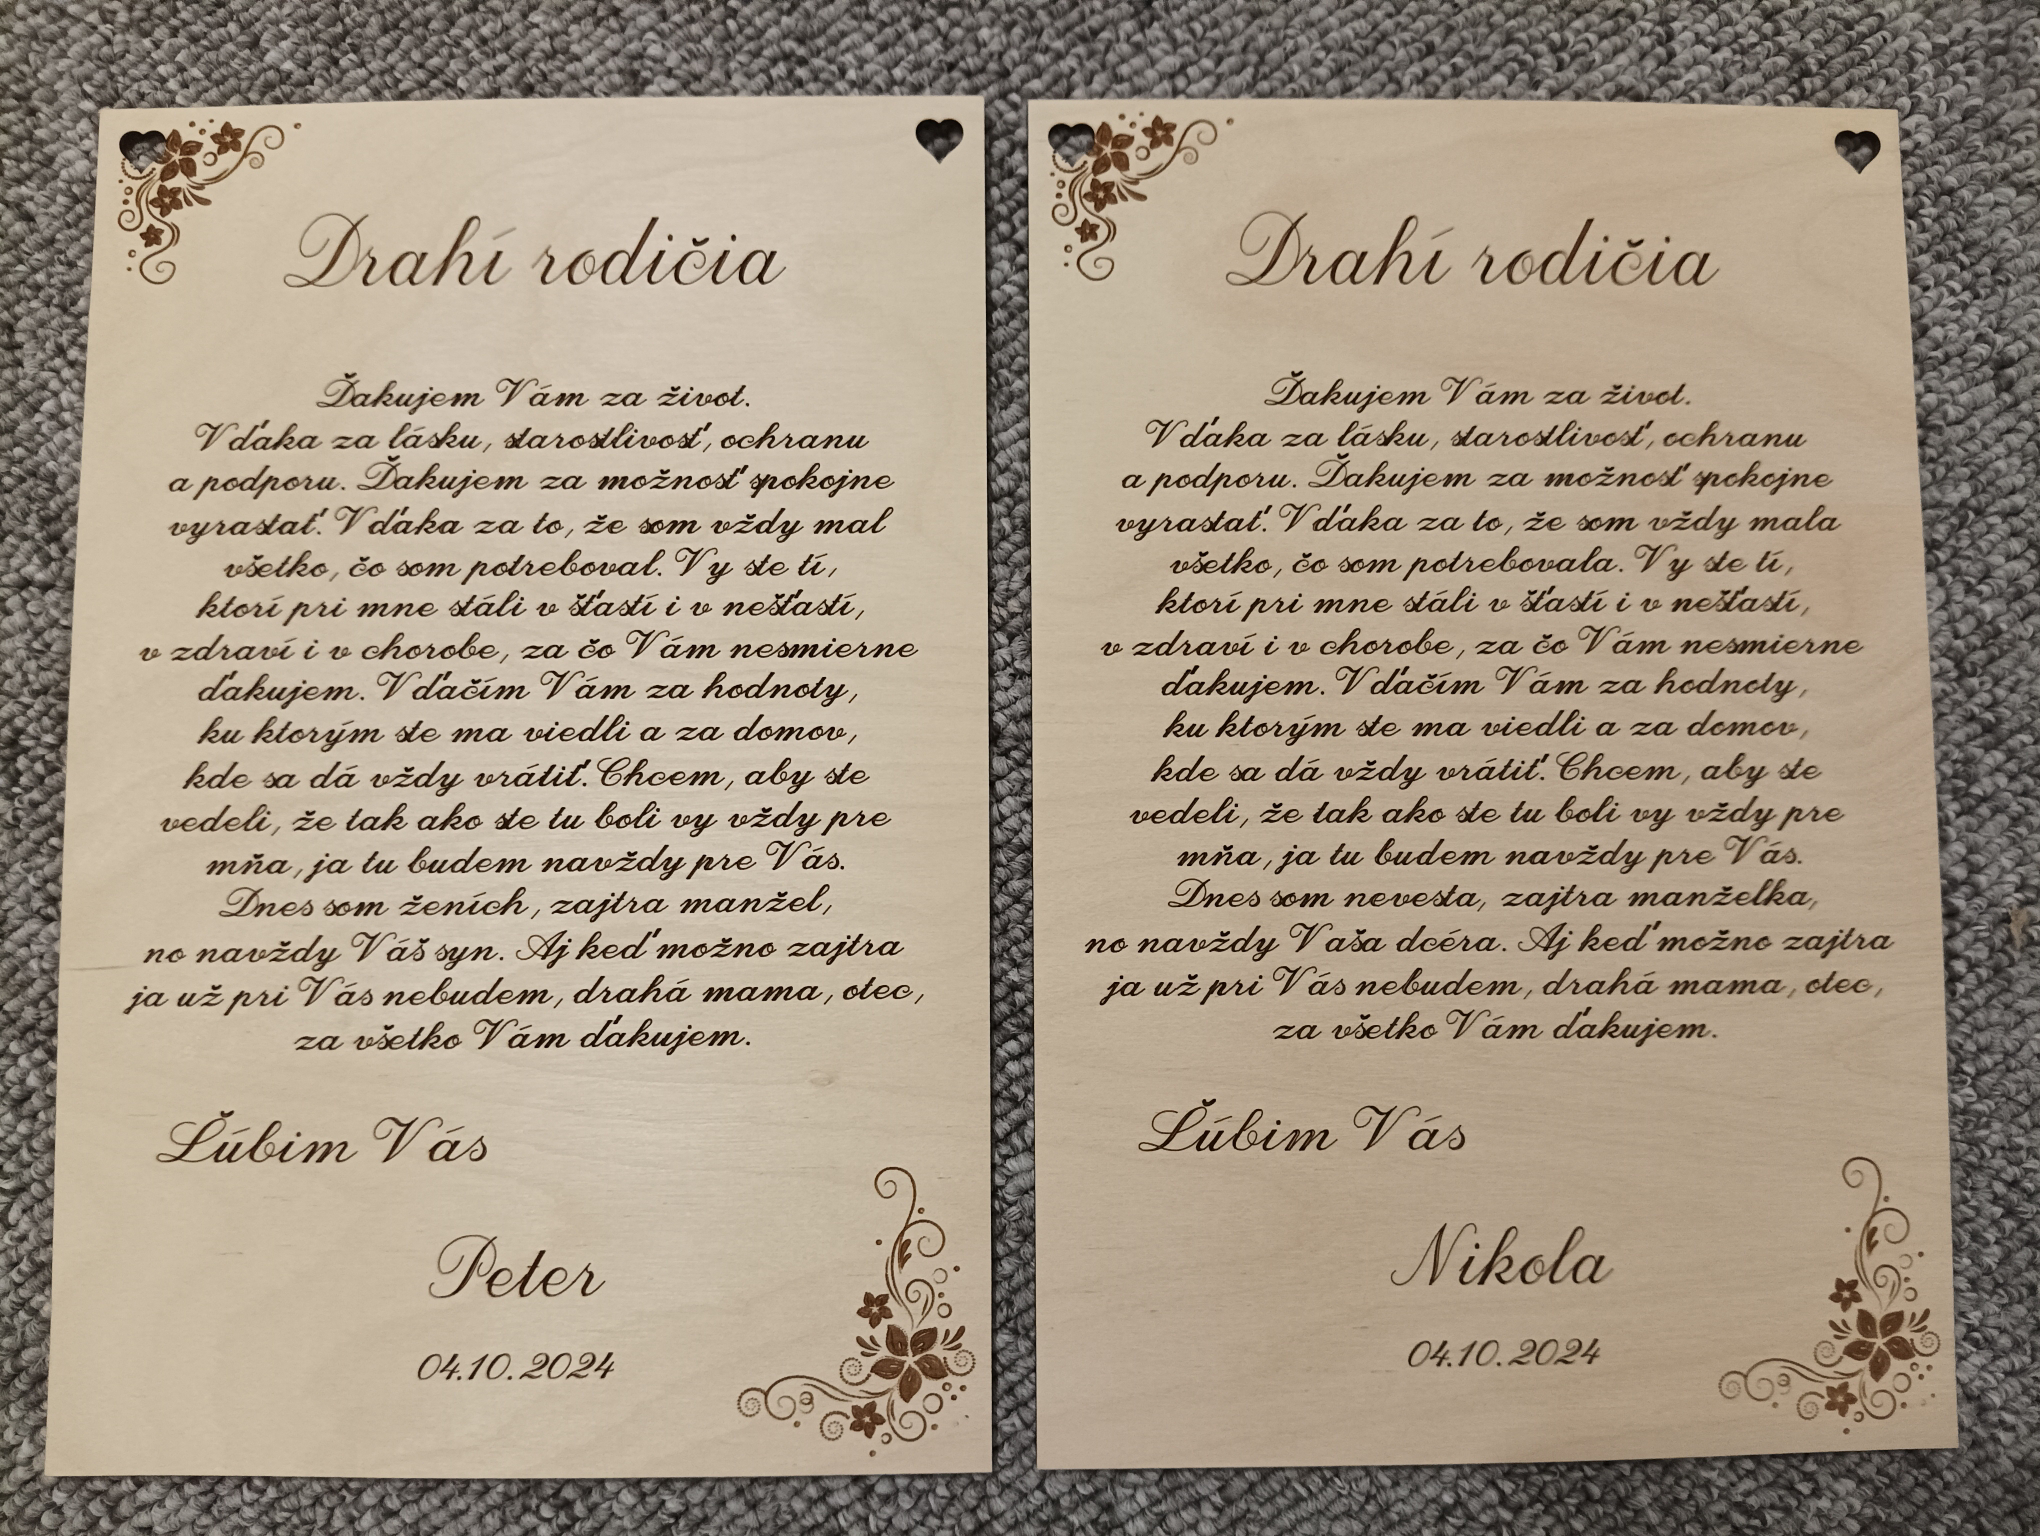 Drahí rodičia
Ďakujem Vám za život.
Vďaka za lásku, starostlivosť, ochranu
a podporu. Ďakujem za možnosť spokojne
vyrastať. Vďaka za to, že som vždy mal
všetko, čo som potreboval. Vy ste tí,
ktorí pri mne stáli v šťastí i v nešťastí,
v zdraví i v chorobe, za čo Vám nesmierne
ďakujem. Vďačím Vám za hodnoty,
ku ktorým ste ma viedli a za domov,
kde sa dá vždy vrátiť. Chcem, aby ste
vedeli, že tak ako ste tu boli vy vždy pre
mňa, ja tu budem navždy pre Vás.
Dnes som ženích, zajtra manžel,
no navždy Váš syn. Aj keď možno zajtra
ja už pri Vás nebudem, drahá mama, otec,
za všetko Vám ďakujem.
Ľúbim Vás
Peter
04.10.2024
Drahí rodičia
Ďakujem Vám za život.
Vďaka za lásku, starostlivosť, ochranu
a podporu. Ďakujem za možnosť spokojne
vyrastať. Vďaka za to, že som vždy mala
všetko, čo som potrebovala. Vy ste tí,
ktorí pri mne stáli v šťastí i v nešťastí,
v zdraví i v chorobe, za čo Vám nesmierne
ďakujem. Vďačím Vám za hodnoty,
ku ktorým ste ma viedli a za domov,
kde sa dá vždy vrátiť. Chcem, aby ste
vedeli, že tak ako ste tu boli vy vždy pre
mňa, ja tu budem navždy pre Vás.
Dnes som nevesta, zajtra manželka,
no navždy Vaša dcéra. Aj keď možno zajtra
ja už pri Vás nebudem, drahá mama, otec,
za všetko Vám ďakujem.
Ľúbim Vás
Nikola
04.10.2024